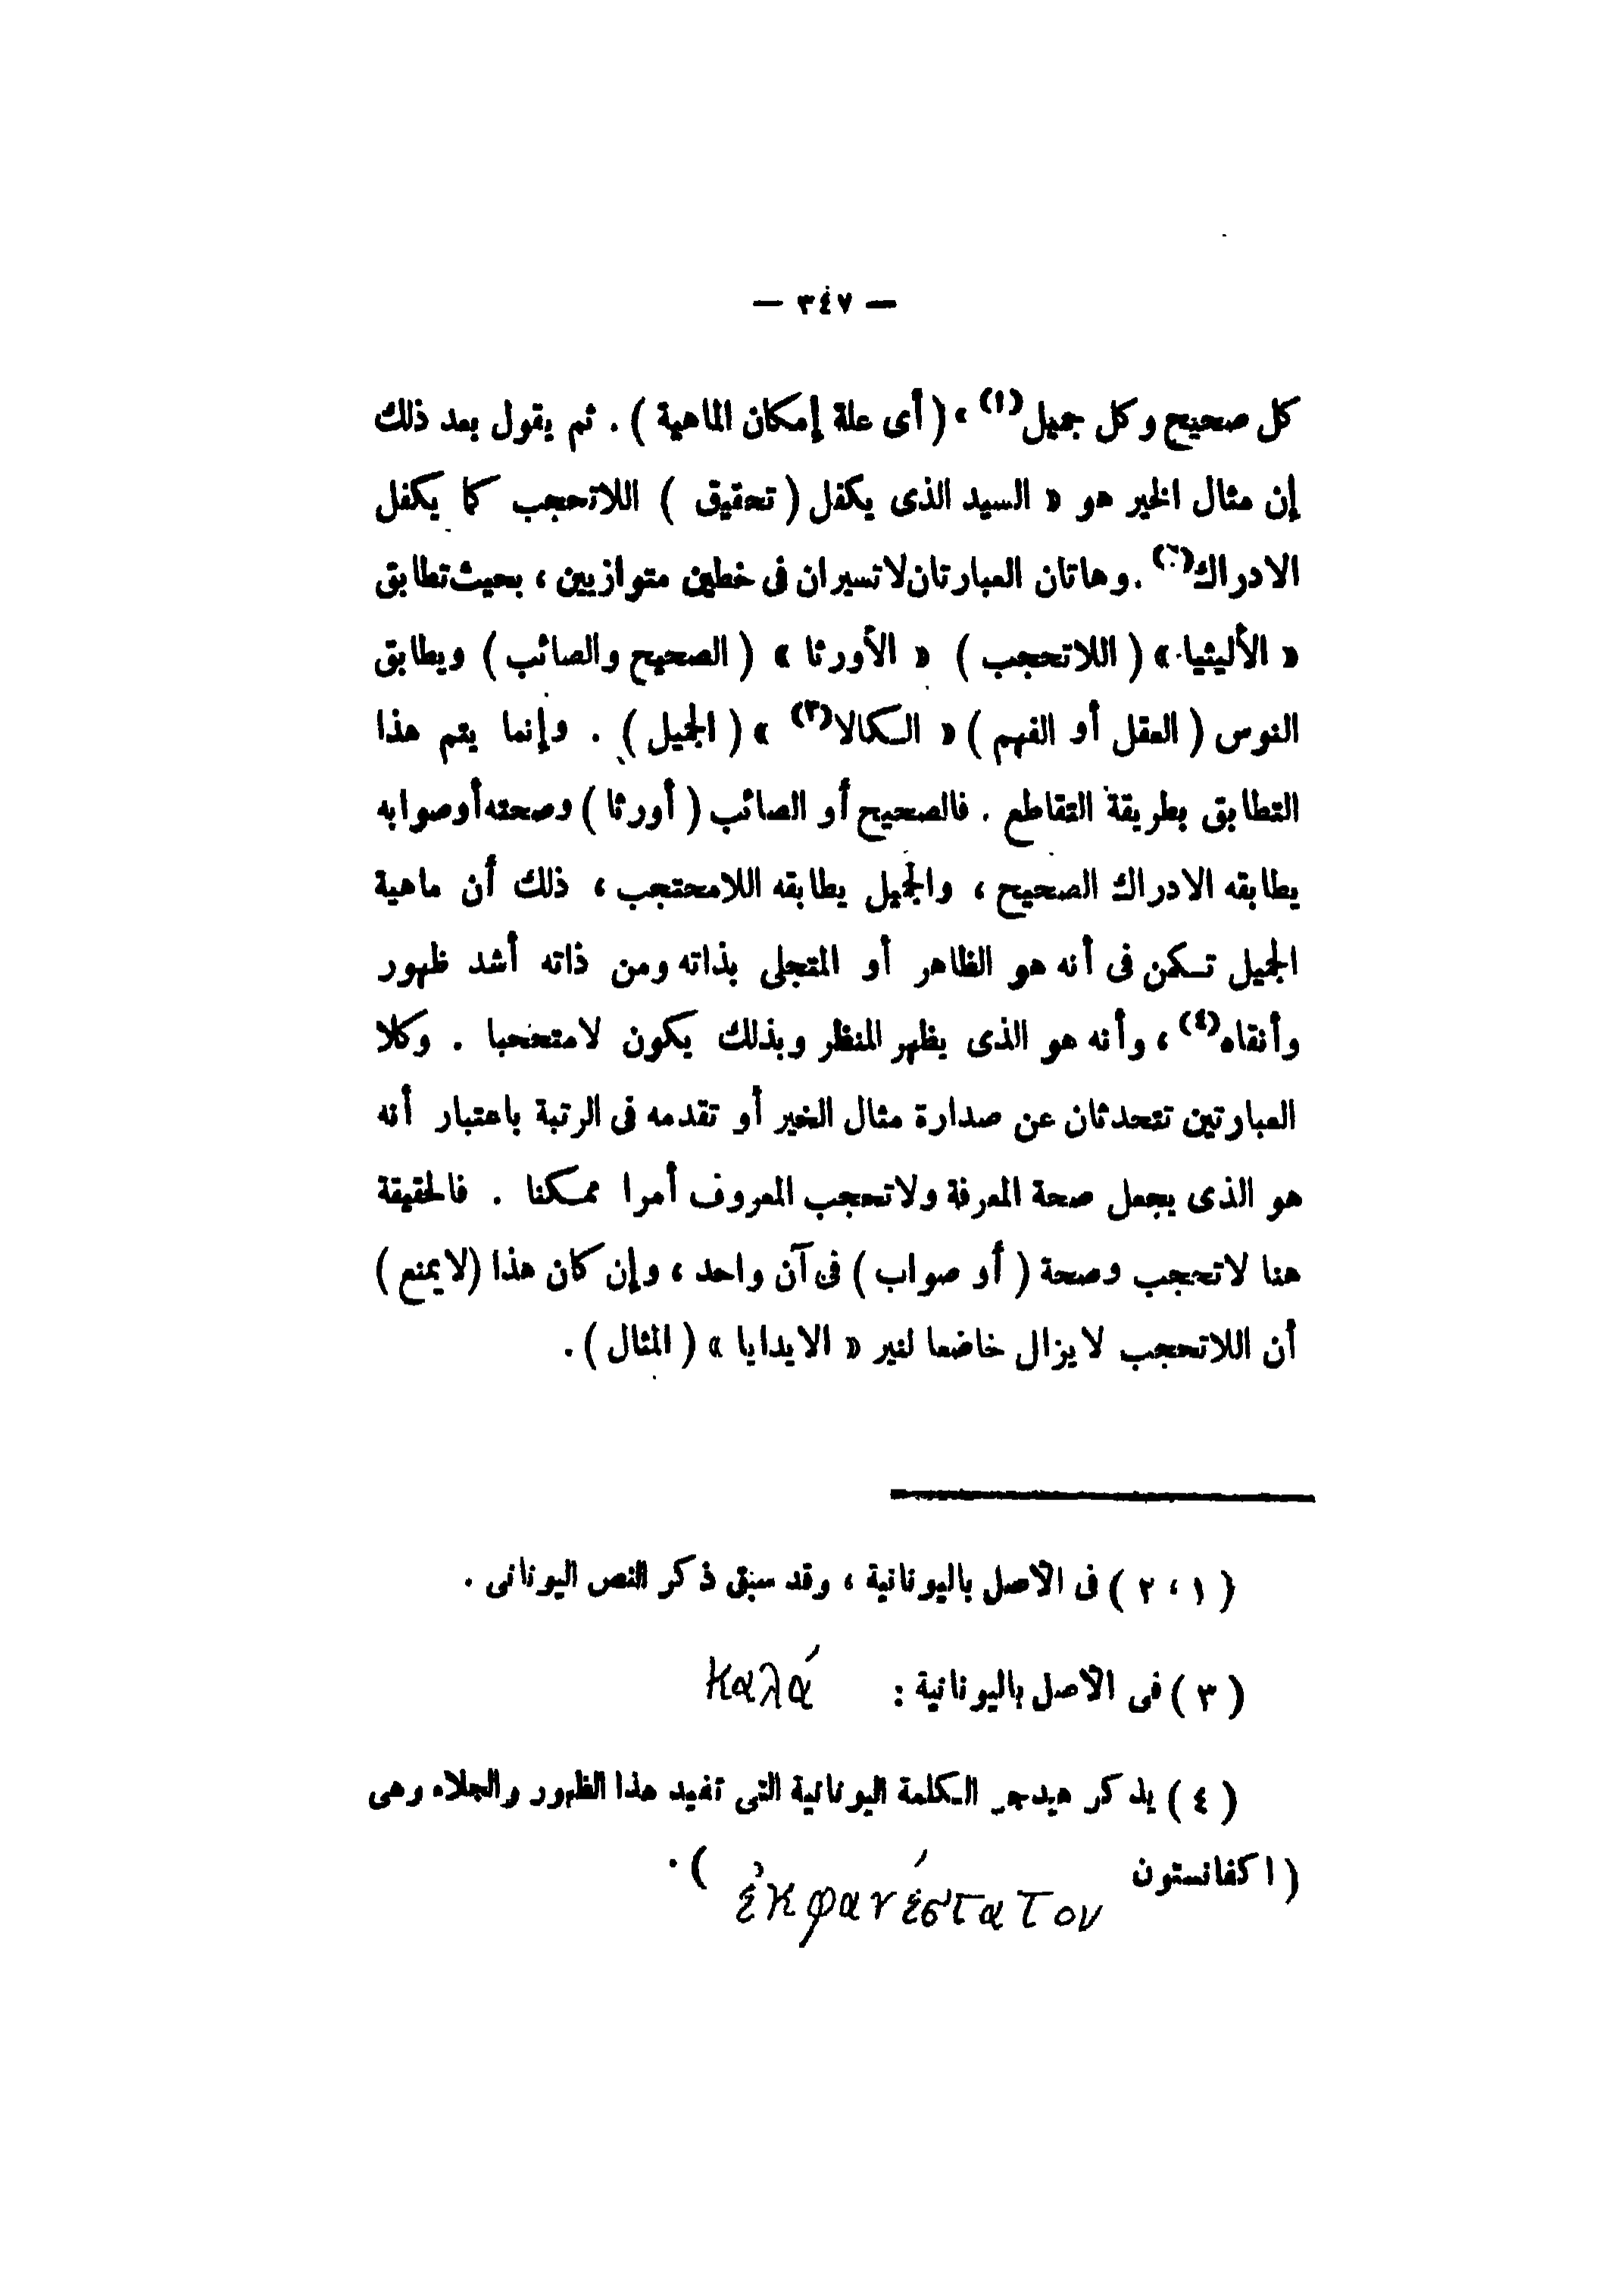 — ٣٤٧ —
كل صحيح وكل جميل(١) ، ( أى علة إمكان الماهية ) . ثم يقول بعد ذلك
إن مثال الخير هو « السيد الذى يكفل ( تحقيق ) اللاتحجب كما يكفل
الادراك(٢) . وهاتان العبارتان لاتسيران فى خطين متوازيين ، بحيث تطابق
« الأليثيا » ( اللاتحجب ) « الأورثا » ( الصحيح والصائب ) ويطابق
النوس ( العقل أو الفهم ) « الكالا(٣) » ( الجميل ) . وإنما يتم هذا
التطابق بطريقة التقاطع . فالصحيح أو الصائب ( أورثا ) وصحته أو صوابه
يطابقه الادراك الصحيح ، والجميل يطابقه اللامحتجب ، ذلك أن ماهية
الجميل تكمن فى أنه هو الظاهر أو المتجلى بذاته ومن ذاته أشد ظهور
وأنقاه(٤) ، وأنه هو الذى يظهر المنظر وبذلك يكون لامتححبا . وكلا
العبارتين تتحدثان عن صدارة مثال الخير أو تقدمه فى الرتبة باعتبار أنه
هو الذى يجعل صحة المعرفة ولاتحجب المعروف أمرا ممكنا . فالحقيقة
هنا لاتحجب وصحة ( أو صواب ) فى آن واحد ، وإن كان هذا (لايمنع )
أن اللاتحجب لايزال خاضعا لنير « الايدايا » ( المثال ) .
( ١ ، ٢ ) فى الأصل باليونانية ، وقد سبق ذكر النص اليونانى .
( ٣ ) فى الأصل باليونانية : καλά
( ٤ ) يذكر هيدجر الكلمة اليونانية التى تفيد هذا الظهور والجلاء وهى
( اكفانستون ἐκφανέστατον ) .